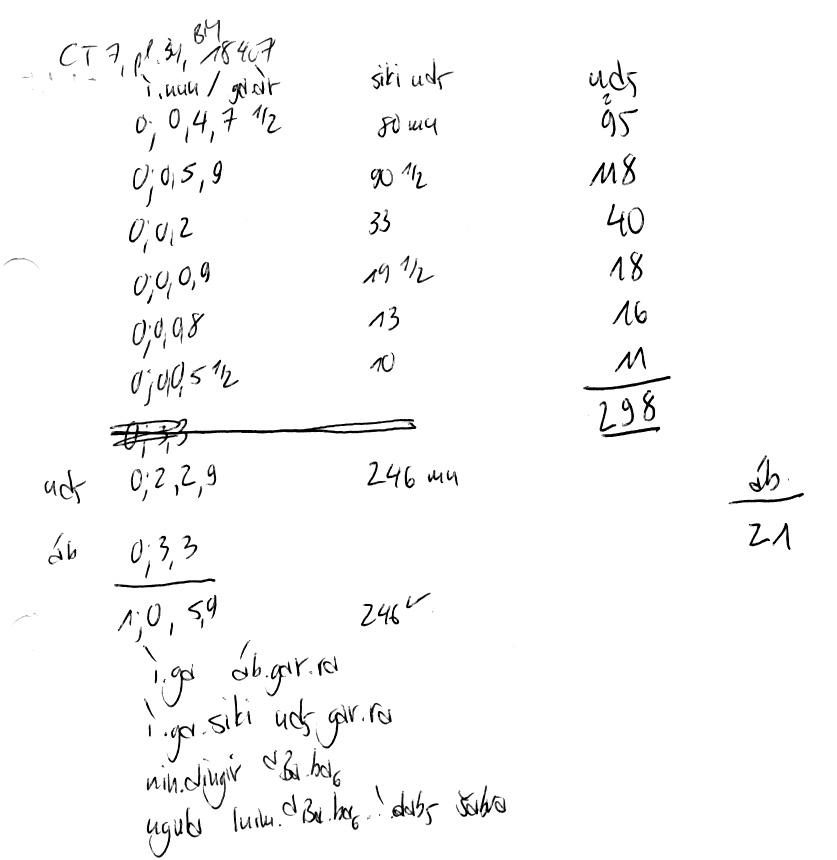 CT 7, pl. 34, BM 18407
ì.nun / ga.àr siki ud5 ud5
0; 0,4,7 1/2 80 mu 95
0;0,5,9 90 1/2 118
0;0,2 33 40
0;0,0,9 19 1/2 18
0;0,0,8 13 16
0;0,0,5 1/2 10 11
298
0;3,3
ud5 0;2,2,9 246 mu
áb 0;3,3
áb.
21
1;0, 5,9 246 ✓
ì.ga áb.gar.ra
ì.ga.siki ud5 gar.ra
nin.dingir dBa.ba6
ugula dBa.ba6 dab5